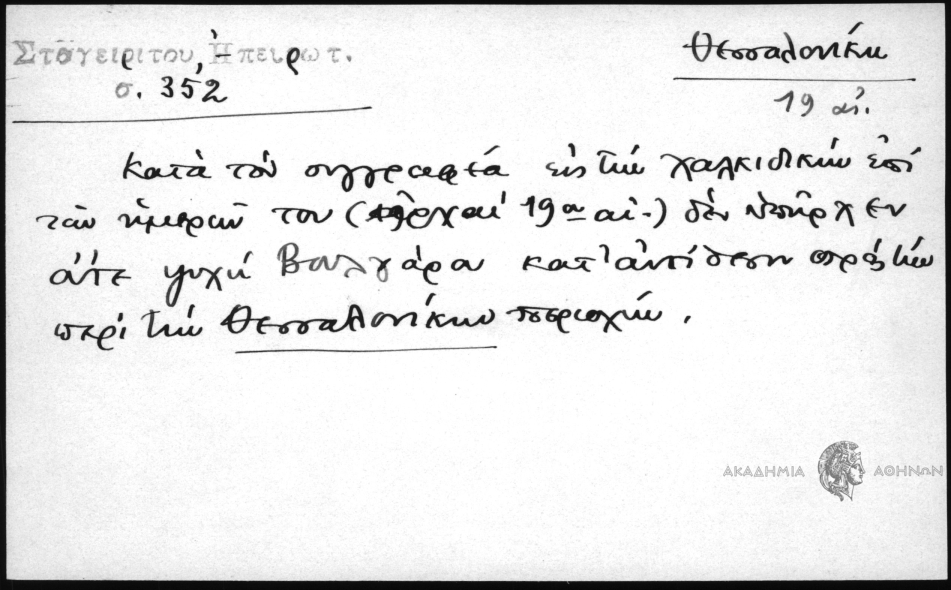 Σταγειρίτου, Ἠπειρωτ.
σ. 352
Θεσσαλονίκη
19 αἰ.
Κατὰ τὸν συγγραφέα εἰς τὴν Χαλκιδικὴν ἐπὶ
τῶν ἡμερῶν του (ἀρχαὶ 19ου αἰ.) δὲν ὑπῆρχεν
οὔτε ψυχὴ Βουλγάρου κατ' ἀντίθεσιν πρὸς τὴν
περὶ τὴν Θεσσαλονίκην περιοχήν.
ΑΚΑΔΗΜΙΑ ΑΘΗΝΩΝ